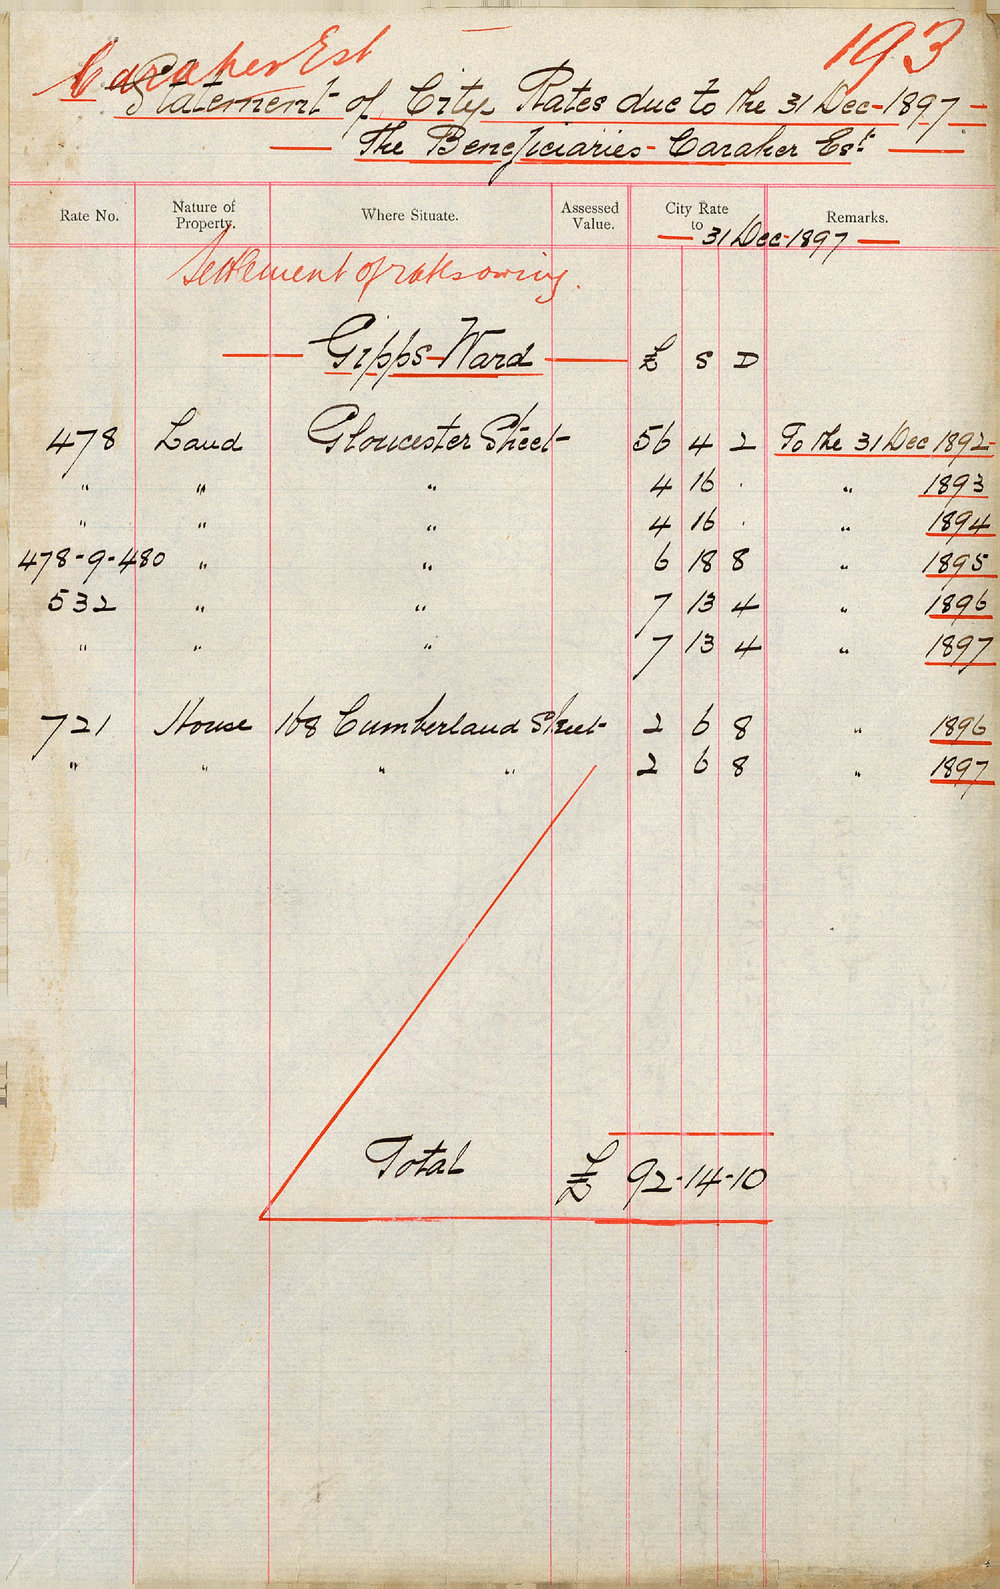 Caraher Est 193
Statement of City Rates due to the 31 Dec-1897-
The Beneficiaries - Caraher Est.
Rate No. Nature of Property. Where Situate. Assessed Value. City Rate to 31 Dec-1897 Remarks.
Settlement of rates owing.
Gipps-Ward £ S D
478 Land Gloucester Street- 56 4 2 To the 31 Dec 1892-
" " " 4 16 . " 1893
" " " 4 16 . " 1894
478-9-480 " " 6 18 8 " 1895
532 " " 7 13 4 " 1896
" " " 7 13 4 " 1897
721 House 168 Cumberland Street- 2 6 8 " 1896
" " " " 2 6 8 " 1897
Total £ 92-14-10